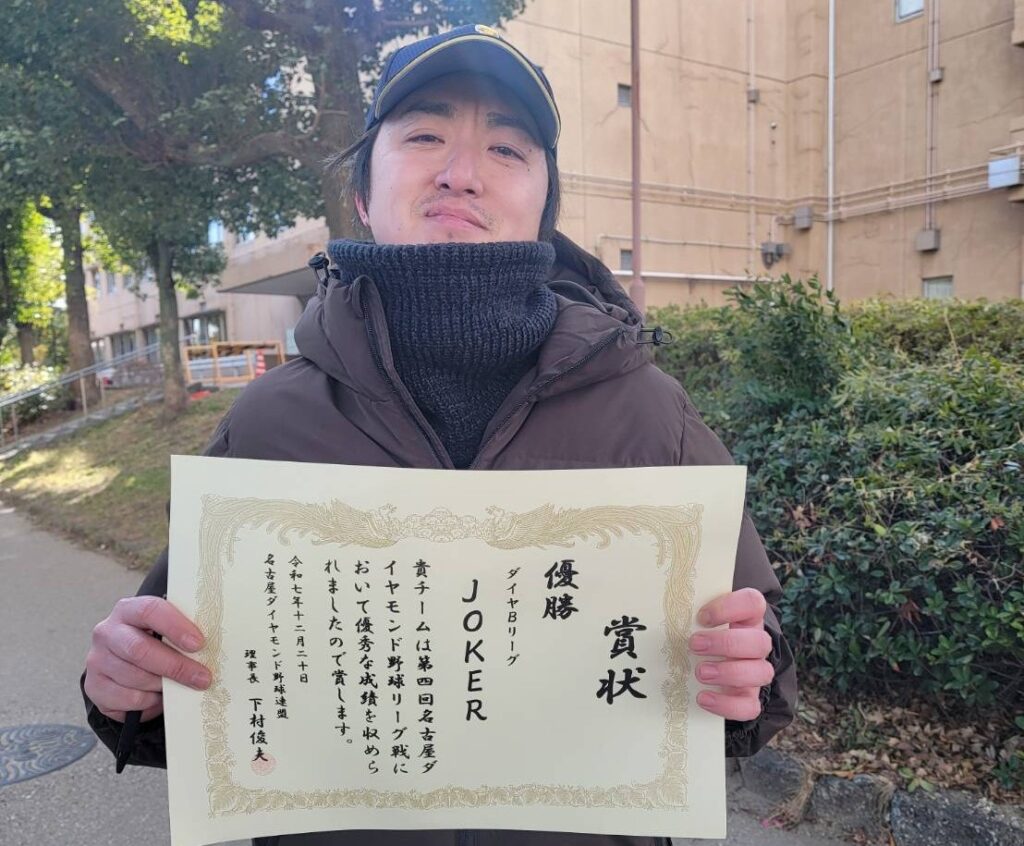 賞状
優勝
ダイヤBリーグ
JOKER
貴チームは第四回名古屋ダ
イヤモンド野球リーグ戦に
おいて優秀な成績を収めら
れましたので賞します。
令和七年十二月二十日
名古屋ダイヤモンド野球連盟
理事長 下村俊夫